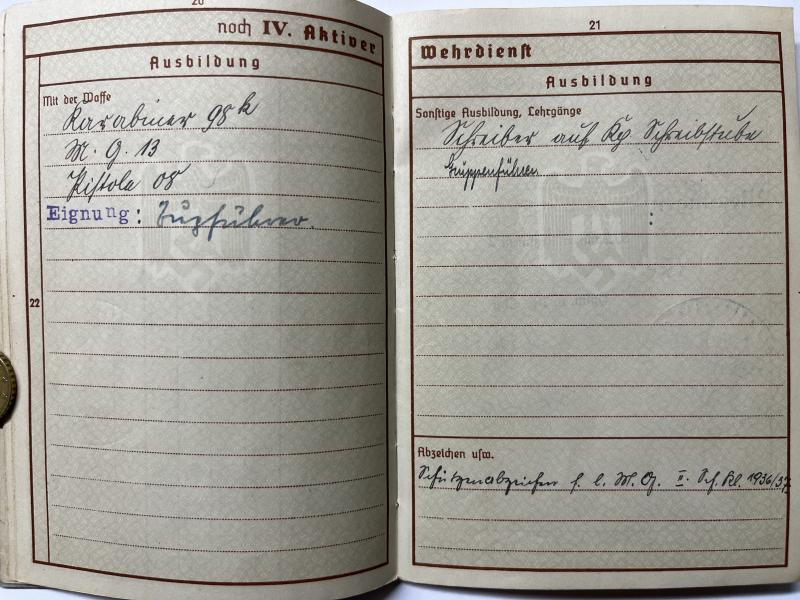 20
noch IV. Aktiver
Ausbildung
Mit der Waffe
Karabiner 98 k
M. G. 13
Pistole 08
Eignung: Zugführer.
22
21
Wehrdienst
Ausbildung
Sonstige Ausbildung, Lehrgänge
Schreiber auf Kp. Schreibstube
Gruppenführer
:
Abzeichen usw.
Schützenabzeichen f. l. M. G. II. Sch. Kl. 1936/37